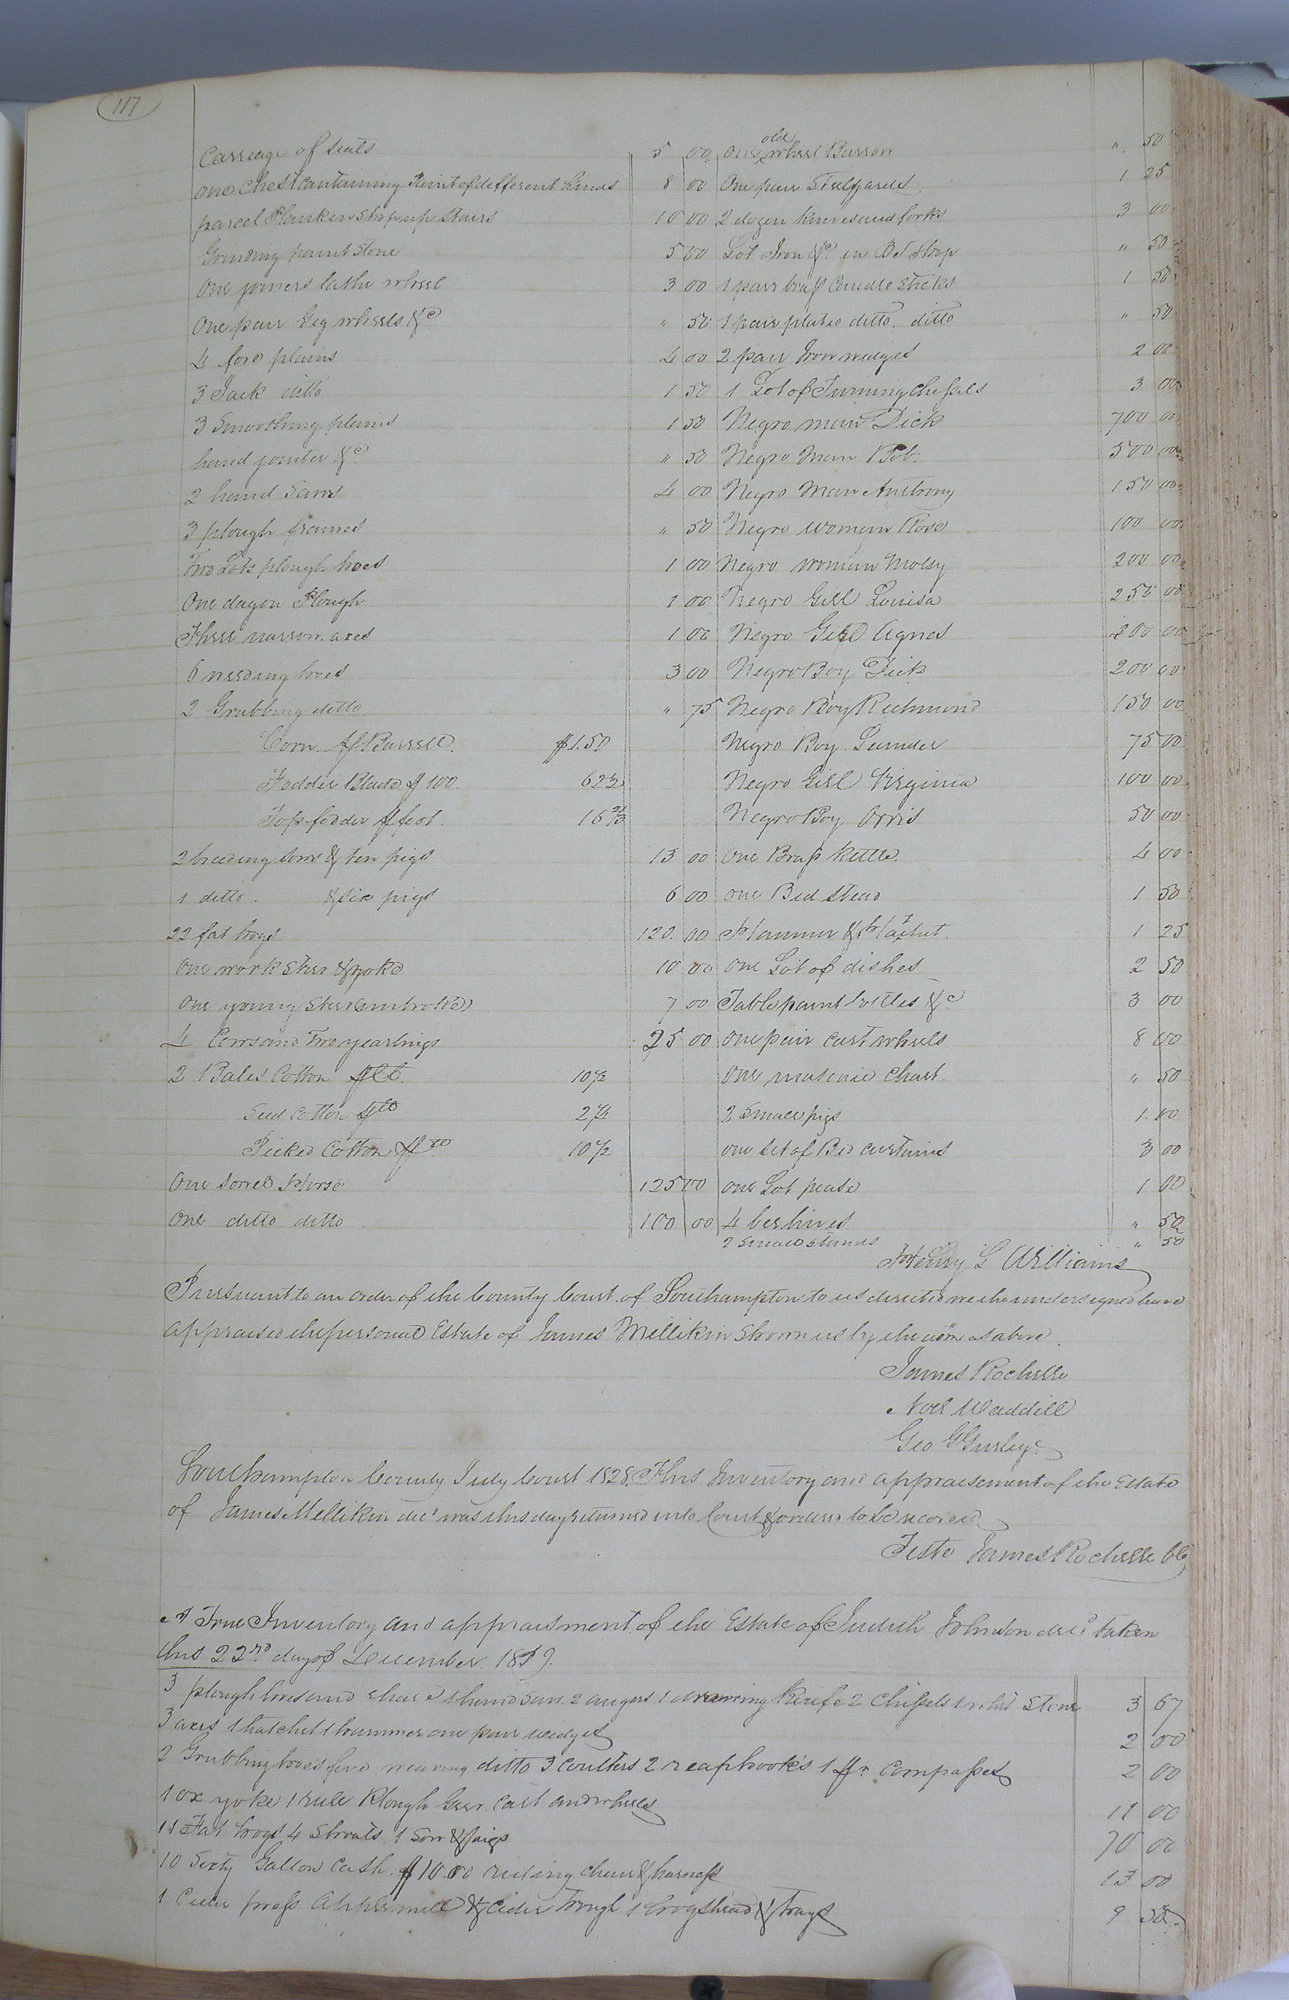 117
Carriage of seats 5 00
One Chest containing Paint of different kinds 8 00
parcel Plank in Shop up Stairs 10 00
Grinding paint Stone 5 00
One joiners lathe wheel 3 00
One pair Gig wheels &c " 50
4 fore plains 4 00
3 Jack ditto 1 50
3 Smoothing plains 1 50
hand jointer &c " 50
2 hand Saws 4 00
3 plough frames " 50
Two Lots plough hoes 1 00
One dagon Plough 1 00
Three narrow axes 1 00
6 weeding hoes 3 00
2 Grubbing ditto " 75
Corn Barrell $1.50
Fodder Blade 100 62½
Top fodder foot 16⅔
2 breeding sows & ten pigs 15 00
1 ditto & six pigs 6 00
22 fat hogs 120 00
One work Steer & yoke 10 00
One young Steer (unbroke) 7 00
4 Cows and Two yearlings 25 00
2 Bales Cotton 10½
Seed Cotton 2½
Picked Cotton 10½
One Sorrel Horse 125 00
One ditto ditto 100 00
One old wheel Barrow " 50
One pair Stillyards 1 25
2 dozen knives and forks 3 00
Lot Iron &c in BS Shop " 50
1 pair brass Candle Sticks 1 50
1 pair plated ditto ditto " 50
2 pair Iron wedges 2 00
1 Lot of Turning Chissels 3 00
Negro man Dick 700 00
Negro Man Bob 500 00
Negro Man Anthony 150 00
Negro woman Rose 100 00
Negro woman Molsy 200 00
Negro Gill Louisa 250 00
Negro Girl Agnes 200 00
Negro Boy Dick 200 00
Negro Boy Richmond 150 00
Negro Boy Leander 75 00
Negro Girl Virginia 100 00
Negro Boy Orris 50 00
One Brass kettle 4 00
One Bed stead 1 50
Hammer & Hatchet 1 25
One Lot of dishes 2 50
Table paint bottles &c 3 00
One pair cart wheels 8 00
One masonic chart " 50
2 Small pigs 1 00
one set of Bed curtains 3 00
one Lot pease 1 00
4 bee hives " 50
2 Small stands " 50
Henry G Williams
Pursuant to an order of the County Court of Southampton to us directed we the undersigned have
appraised the personal Estate of James Mellikin Shown us by the as above
James Rochelle
Noel Waddill
Geo Gurley
Southampton County July Court 1828 This Inventory and appraisement of the Estate
of James Mellikin decd was this day returned into Court & ordered to be recorded
Teste James Rochelle CC
A True Inventory and appraisment of the Estate of Judith Johnson decd taken
this 22nd day of December 18
3 plough hoes and share 1 hand Saw 2 augers 1 drawing knife 2 Chissels 1 whet Stone 3 67
3 axes 1 hatchet 1 hammer one pair wedges 2 00
2 Grubbing hoes five weaving ditto 3 Coulters 2 reaphooks 1 pr Compasses 2 00
1 ox yoke 1 rule Plough Gear cart and wheels 11 00
11 Fat hogs 4 Shoats 1 Sow & pigs 70 00
10 Sixty Gallon Cask $10.00 riding chair & harness 13 00
1 Cider press Apple mill & Cider Trough 1 hogshead & trays 9 50